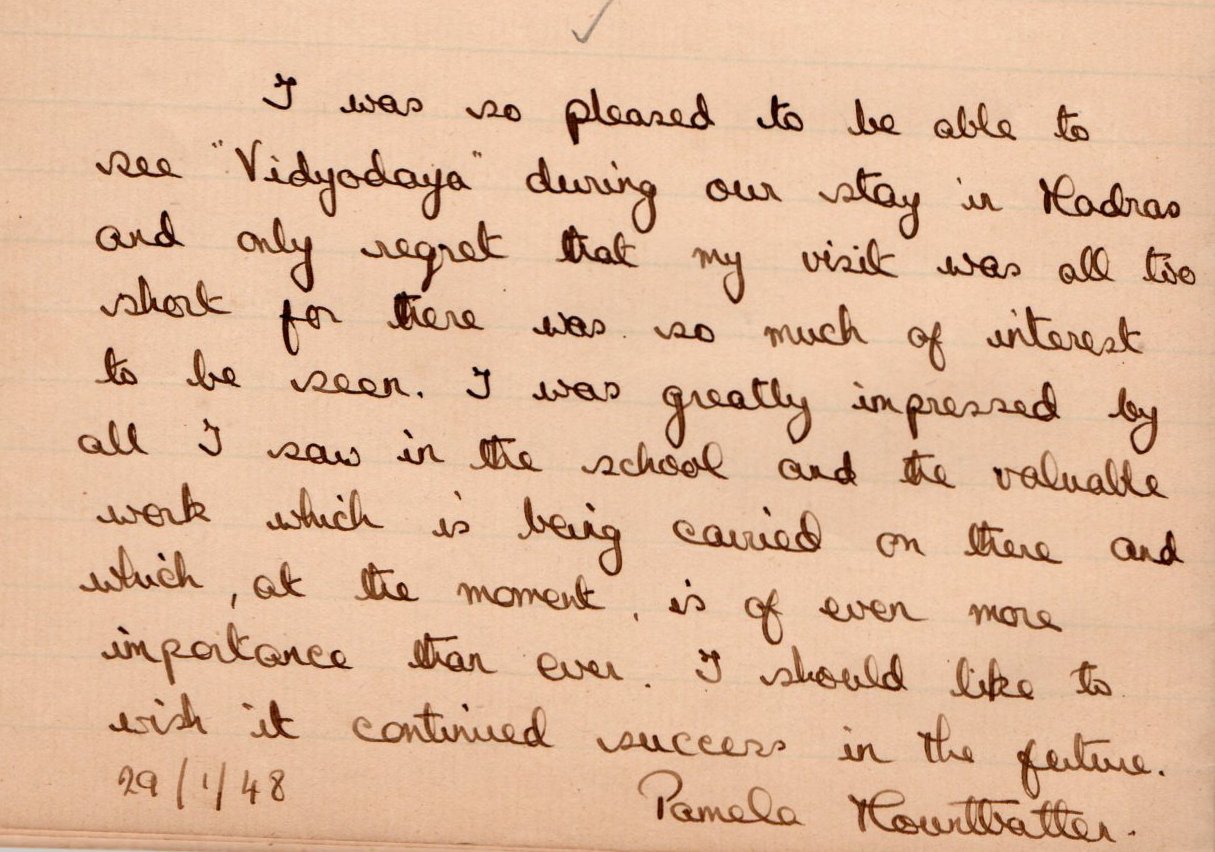 I was so pleased to be able to
see "Vidyodaya" during our stay in Madras
and only regret that my visit was all too
short for there was so much of interest
to be seen. I was greatly impressed by
all I saw in the school and the valuable
work which is being carried on there and
which, at the moment, is of even more
importance than ever. I should like to
wish it continued success in the future.
29/1/48 Pamela Mountbatten.